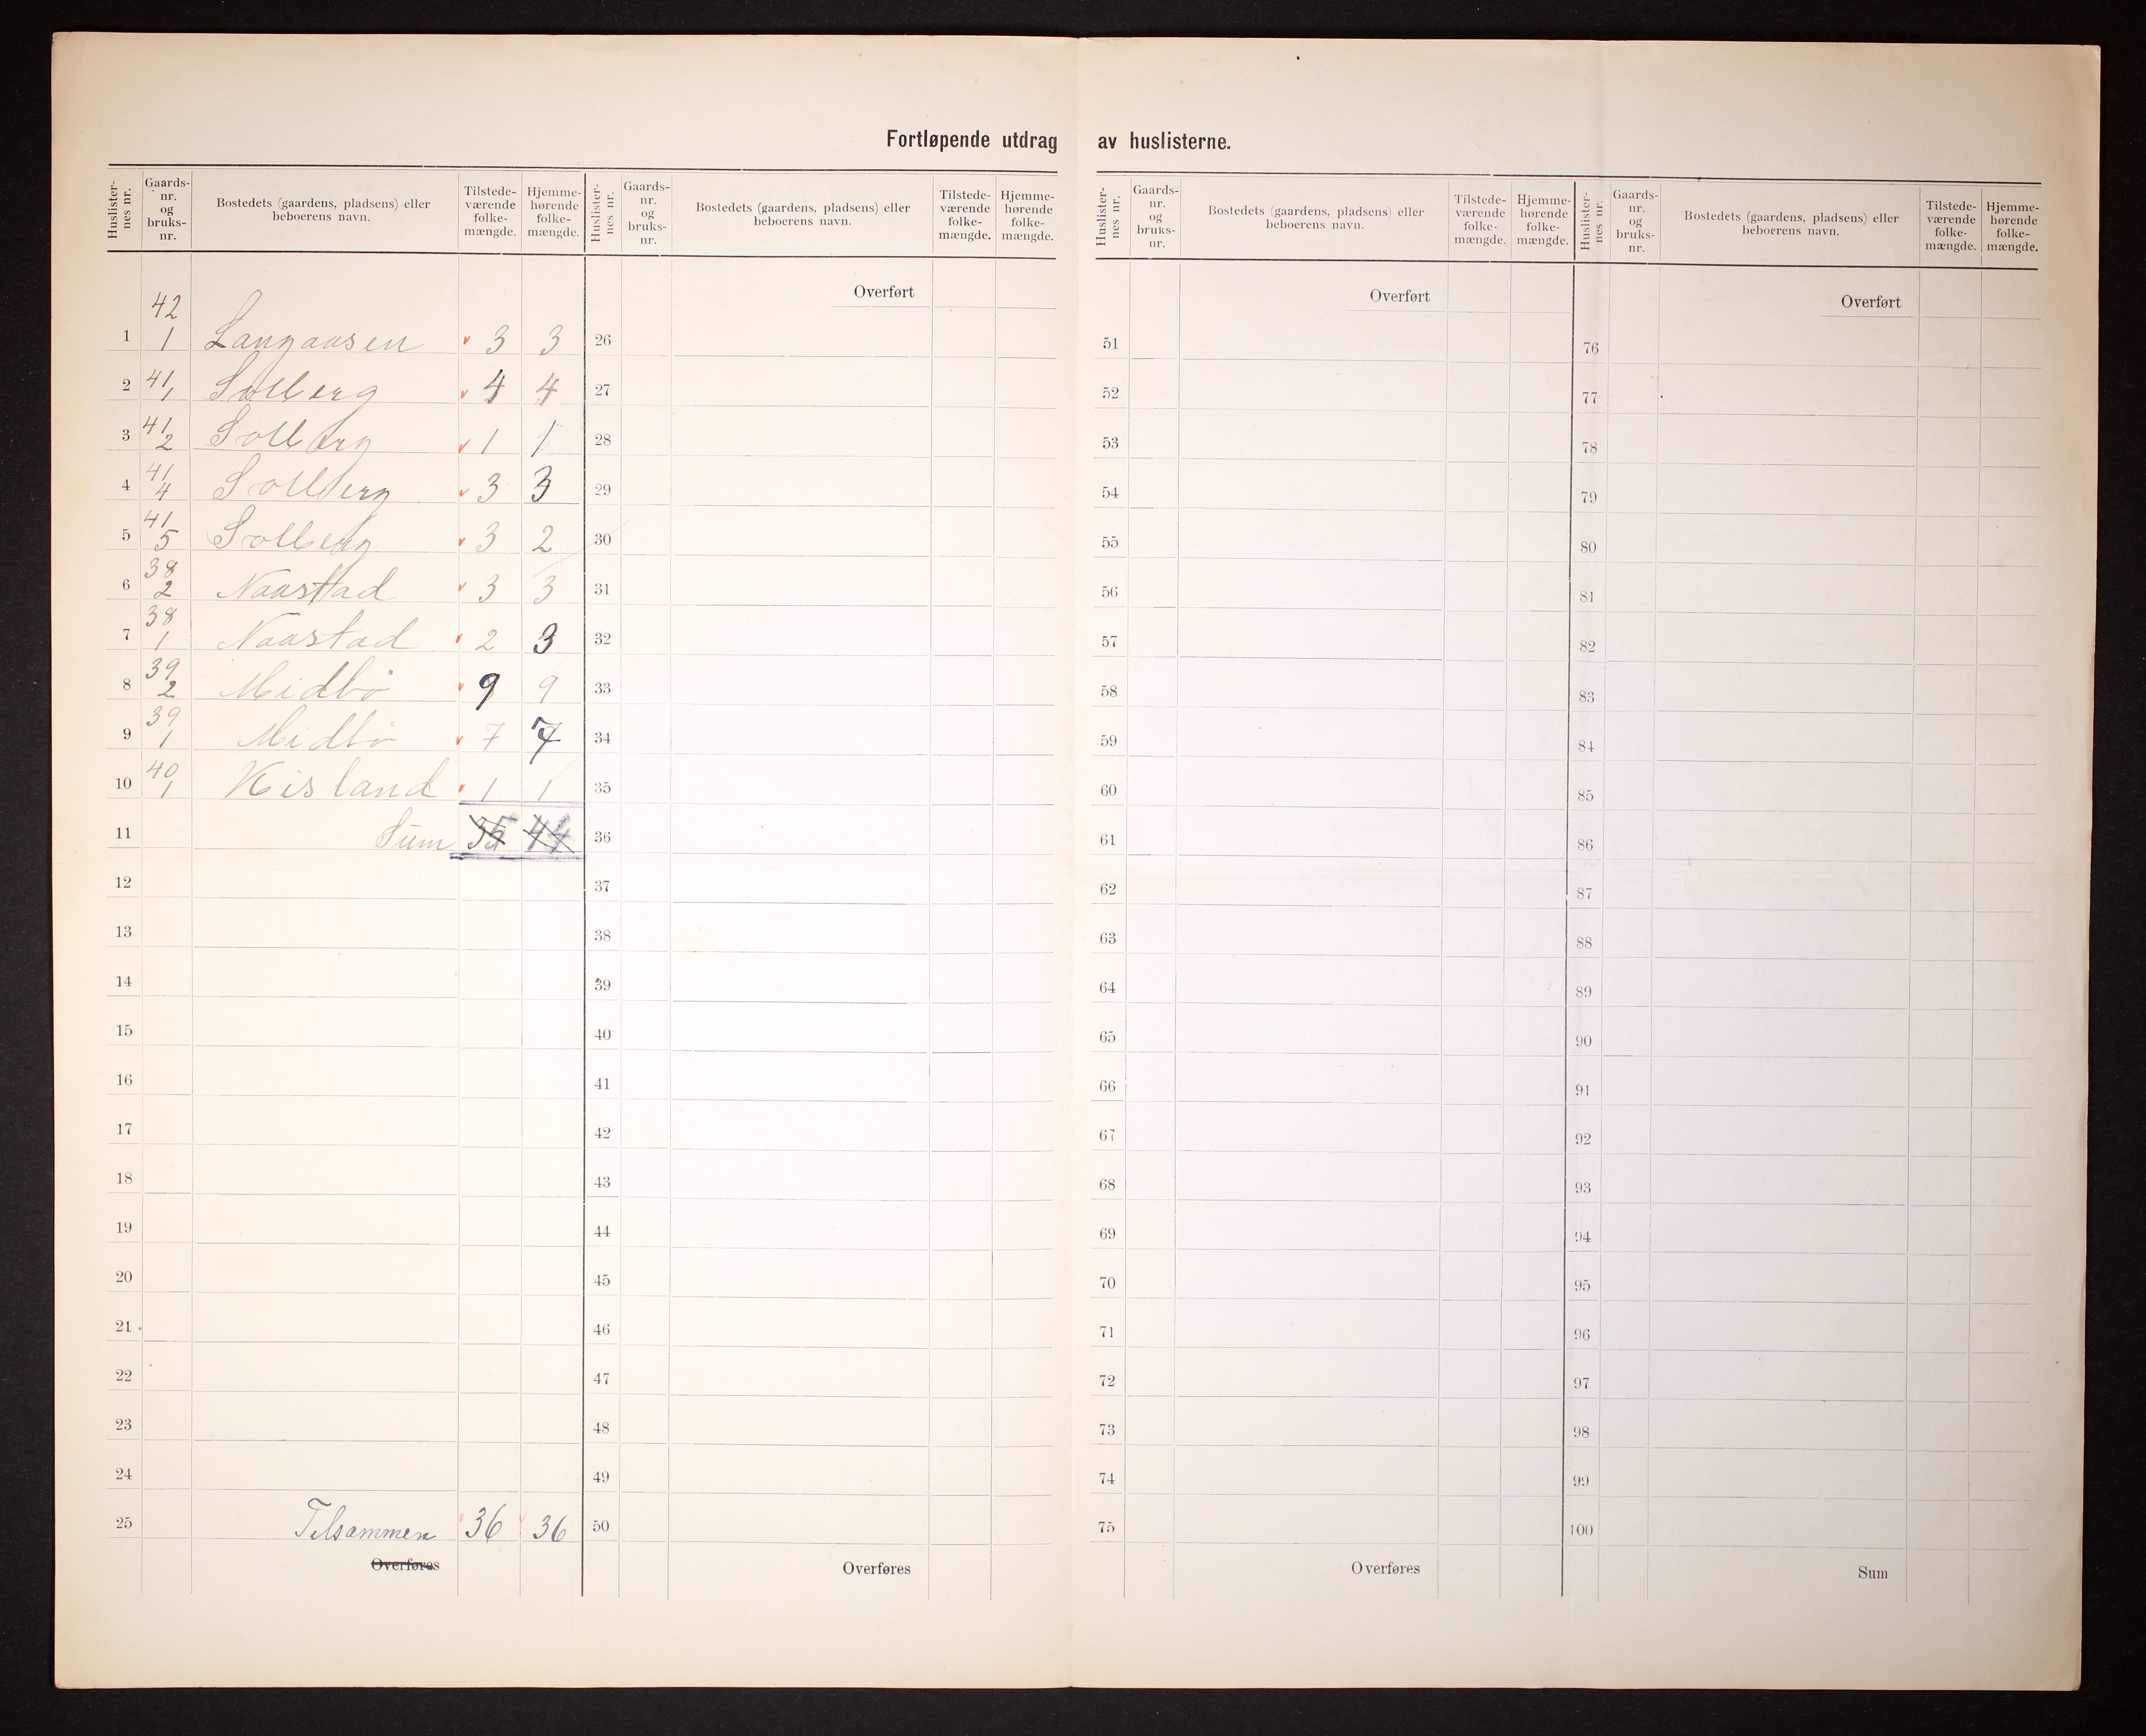 Fortløpende utdrag av huslisterne.
Huslisternes nr. Gaards-nr. og bruks-nr. Bostedets (gaardens, pladsens) eller beboerens navn. Tilstedeværende folkemængde. Hjemmehørende folkemængde.
42
1 1 Langaasen 3 3
2 41/1 Solberg 4 4
3 41/2 Solberg 1 1
4 41/4 Solberg 3 3
5 41/5 Solberg 3 2
6 38/2 Naastad 3 3
7 38/1 Naastad 2 3
8 39/2 Midbö 9 9
9 39/1 Midbö 7 7
10 40/1 Kisland 1 1
11 Sum 35 44
12
13
14
15
16
17
18
19
20
21
22
23
24
25 Tilsammen 36 36
Overføres
Huslisternes nr. Gaards-nr. og bruks-nr. Bostedets (gaardens, pladsens) eller beboerens navn. Tilstedeværende folkemængde. Hjemmehørende folkemængde.
Overført
26
27
28
29
30
31
32
33
34
35
36
37
38
39
40
41
42
43
44
45
46
47
48
49
50
Overføres
Huslisternes nr. Gaards-nr. og bruks-nr. Bostedets (gaardens, pladsens) eller beboerens navn. Tilstedeværende folkemængde. Hjemmehørende folkemængde.
Overført
51
52
53
54
55
56
57
58
59
60
61
62
63
64
65
66
67
68
69
70
71
72
73
74
75
Overføres
Huslisternes nr. Gaards-nr. og bruks-nr. Bostedets (gaardens, pladsens) eller beboerens navn. Tilstedeværende folkemængde. Hjemmehørende folkemængde.
Overført
76
77
78
79
80
81
82
83
84
85
86
87
88
89
90
91
92
93
94
95
96
97
98
99
100
Sum